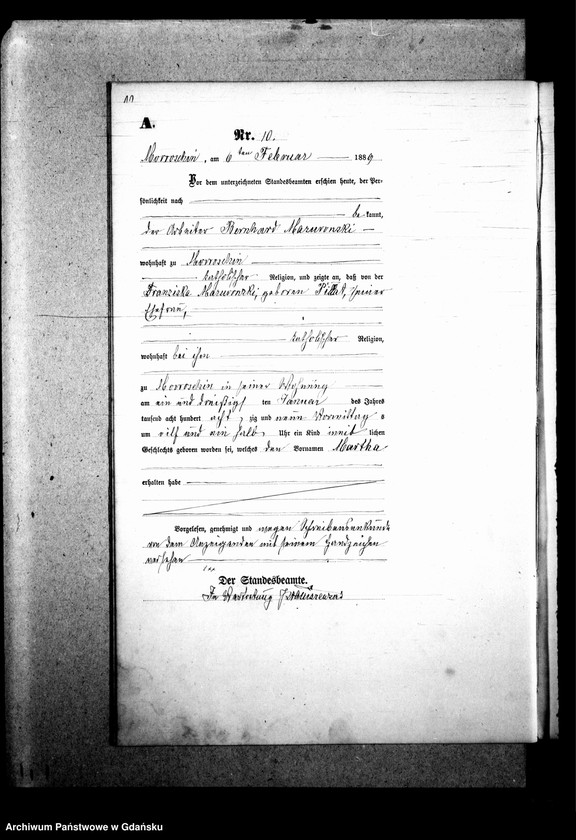 A.
Nr. 10.
Morroschin, am 6ten Februar 1889
Vor dem unterzeichneten Standesbeamten erschien heute, der Per-
sönlichkeit nach
be kannt,
der Arbeiter Bernhard Mazurowski
wohnhaft zu Morroschin
katholischer Religion, und zeigte an, daß von der
Franziska Mazurowski, geboren Pillat, seiner
Ehefrau,
katholischer Religion,
wohnhaft bei ihm
zu Morroschin in seiner Wohnung
am ein und dreißig ten Januar des Jahres
tausend acht hundert acht zig und neun Vormittag s
um elf und ein halb Uhr ein Kind weib lichen
Geschlechts geboren worden sei, welches den Vornamen Martha
erhalten habe
Vorgelesen, genehmigt und wegen Schreibensunkunde
von dem Anzeigenden mit seinem Handzeichen
versehen
xxx
Der Standesbeamte.
In Vertretung
Archiwum Państwowe w Gdańsku